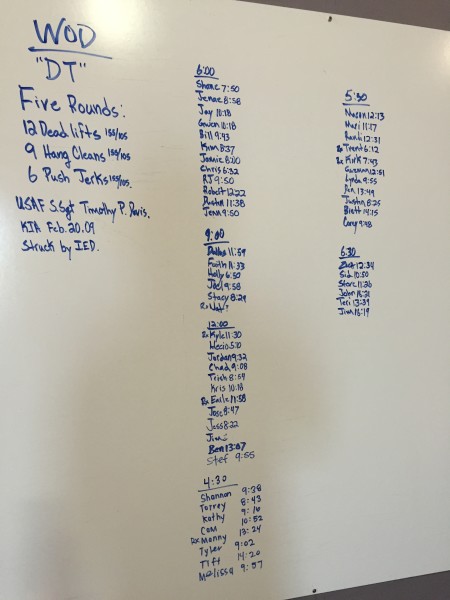 WOD
"DT"
Five Rounds:
12 Dead lifts 155/105
9 Hang Cleans 155/105
6 Push Jerks 155/105.
USAF S.Sgt Timothy P. Davis.
KIA Feb. 20.09
Struck by IED.
6:00
Shane 7:50
Jenae 8:58
Jay 10:18
Gwen 10:18
Bill 9:43
Kim 8:37
Jamie 8:00
Chris 6:32
RJ 9:50
Robert 12:22
Dustin 11:38
Jenn 9:50
9:00
Dallas 11:59
Faith 11:33
Holly 6:50
Joel 9:58
Stacy 8:29
Rx
12:00
Rx Kyle 11:30
Mecio 5:10
Jordan 9:32
Chad 9:08
Trish 8:54
Kris 10:18
Rx 11:58
Jose 9:47
Jess 8:22
Jim
Ben 13:07
Stef 9:55
4:30
Shannon 9:38
Torrey 8:43
Kathy 9:16
Cam 10:52
Rx Manny 13:24
Tyler 9:02
Tift 14:20
Melissa 9:57
5:30
Mason 12:13
Mari 11:17
12:31
Rx Trent 6:12
Rx Kirk 7:43
Guzman 12:51
Lynda 9:55
13:49
Justin 8:25
Brett 14:15
Corey 9:48
6:30
12:34
Sid 10:50
11:26
John 16:21
Teri 13:39
Jim 16:19